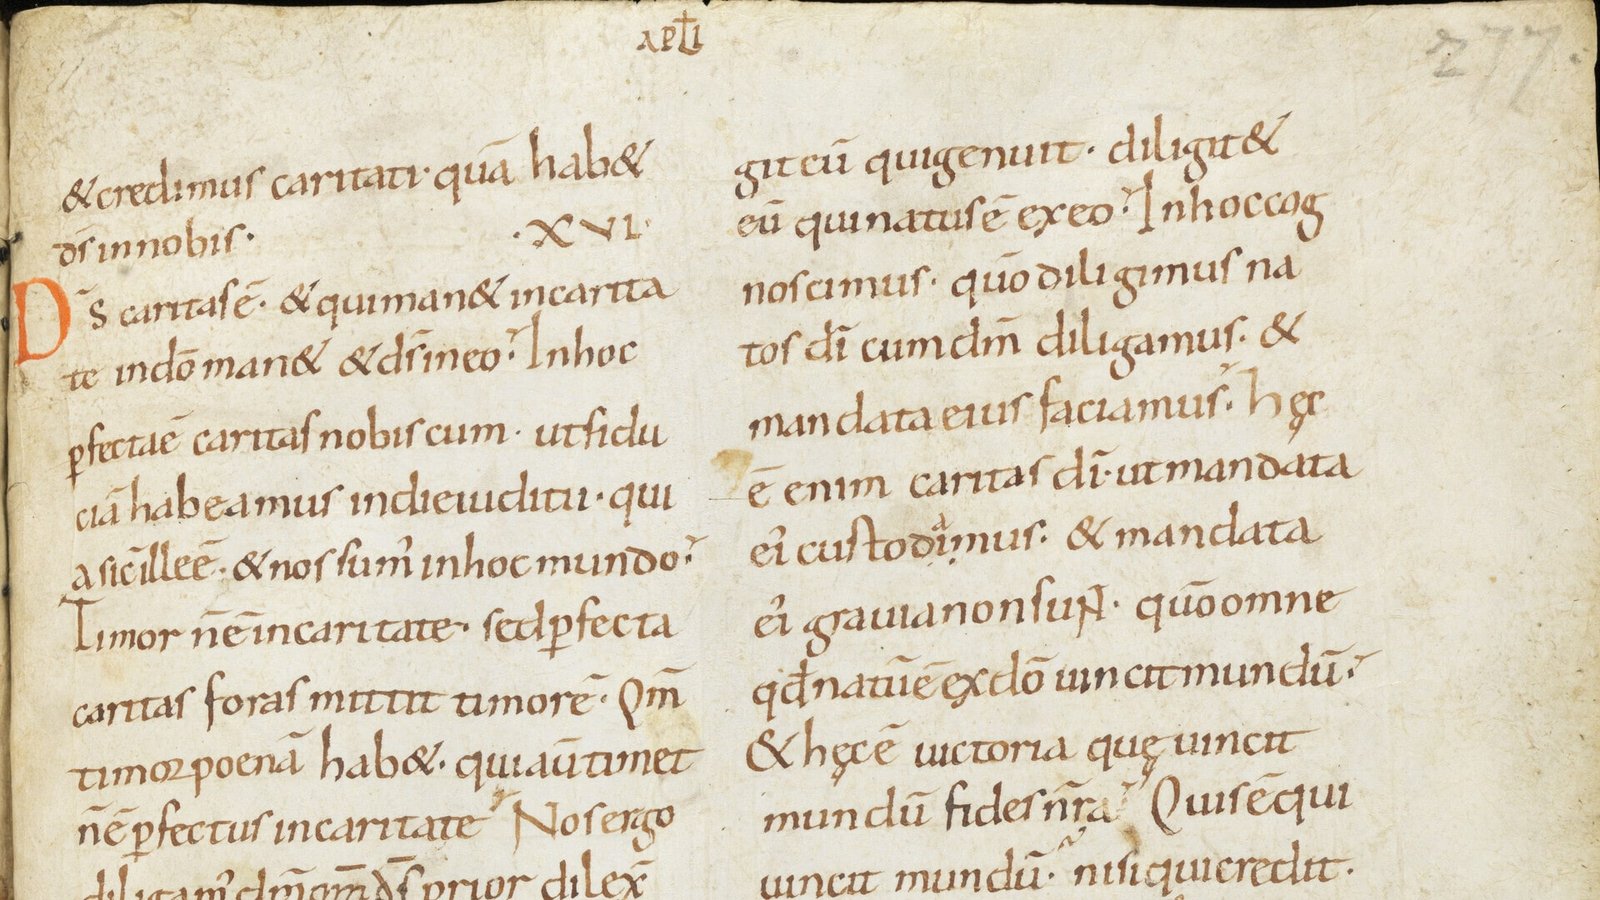 apłi
277.
&credimus caritati· quā hab&
d̄s innobis·
·XVI·
D̄s caritasē· &quiman& incarita
te indō man& &ds̄ineo· Inhoc
ꝑfectaē caritas nobiscum· utfidu
ciā habeamus indieiuditii· qui
a sic̄illeē· &nos sum' inhoc mundo·
Timor n̄ēincaritate· sedꝑfecta
caritas foras mittit timorē· Qm̄
timor poenā hab&· quiaūtimet
n̄ēꝑfectus incaritate Nosergo
diligam' dm̄ qm̄ d̄s prior dilex̄
git eū quigenuit· diligit&
eū quinatusē exeo· Inhoccog
noscimus· quō diligimus na
tos dī cumdm̄ diligamus· &
mandata eius faciamus· hęc
ē enim caritas dī· utmandata
ei' custodiamus· & mandata
ei' grauia nonsuɴt· quō omne
qd̄ natūē exdō uincit mundū·
& hęcē uictoria quę uincit
mundū fides nr̄a Quisēqui
uincit mundū· nisi qui credit·